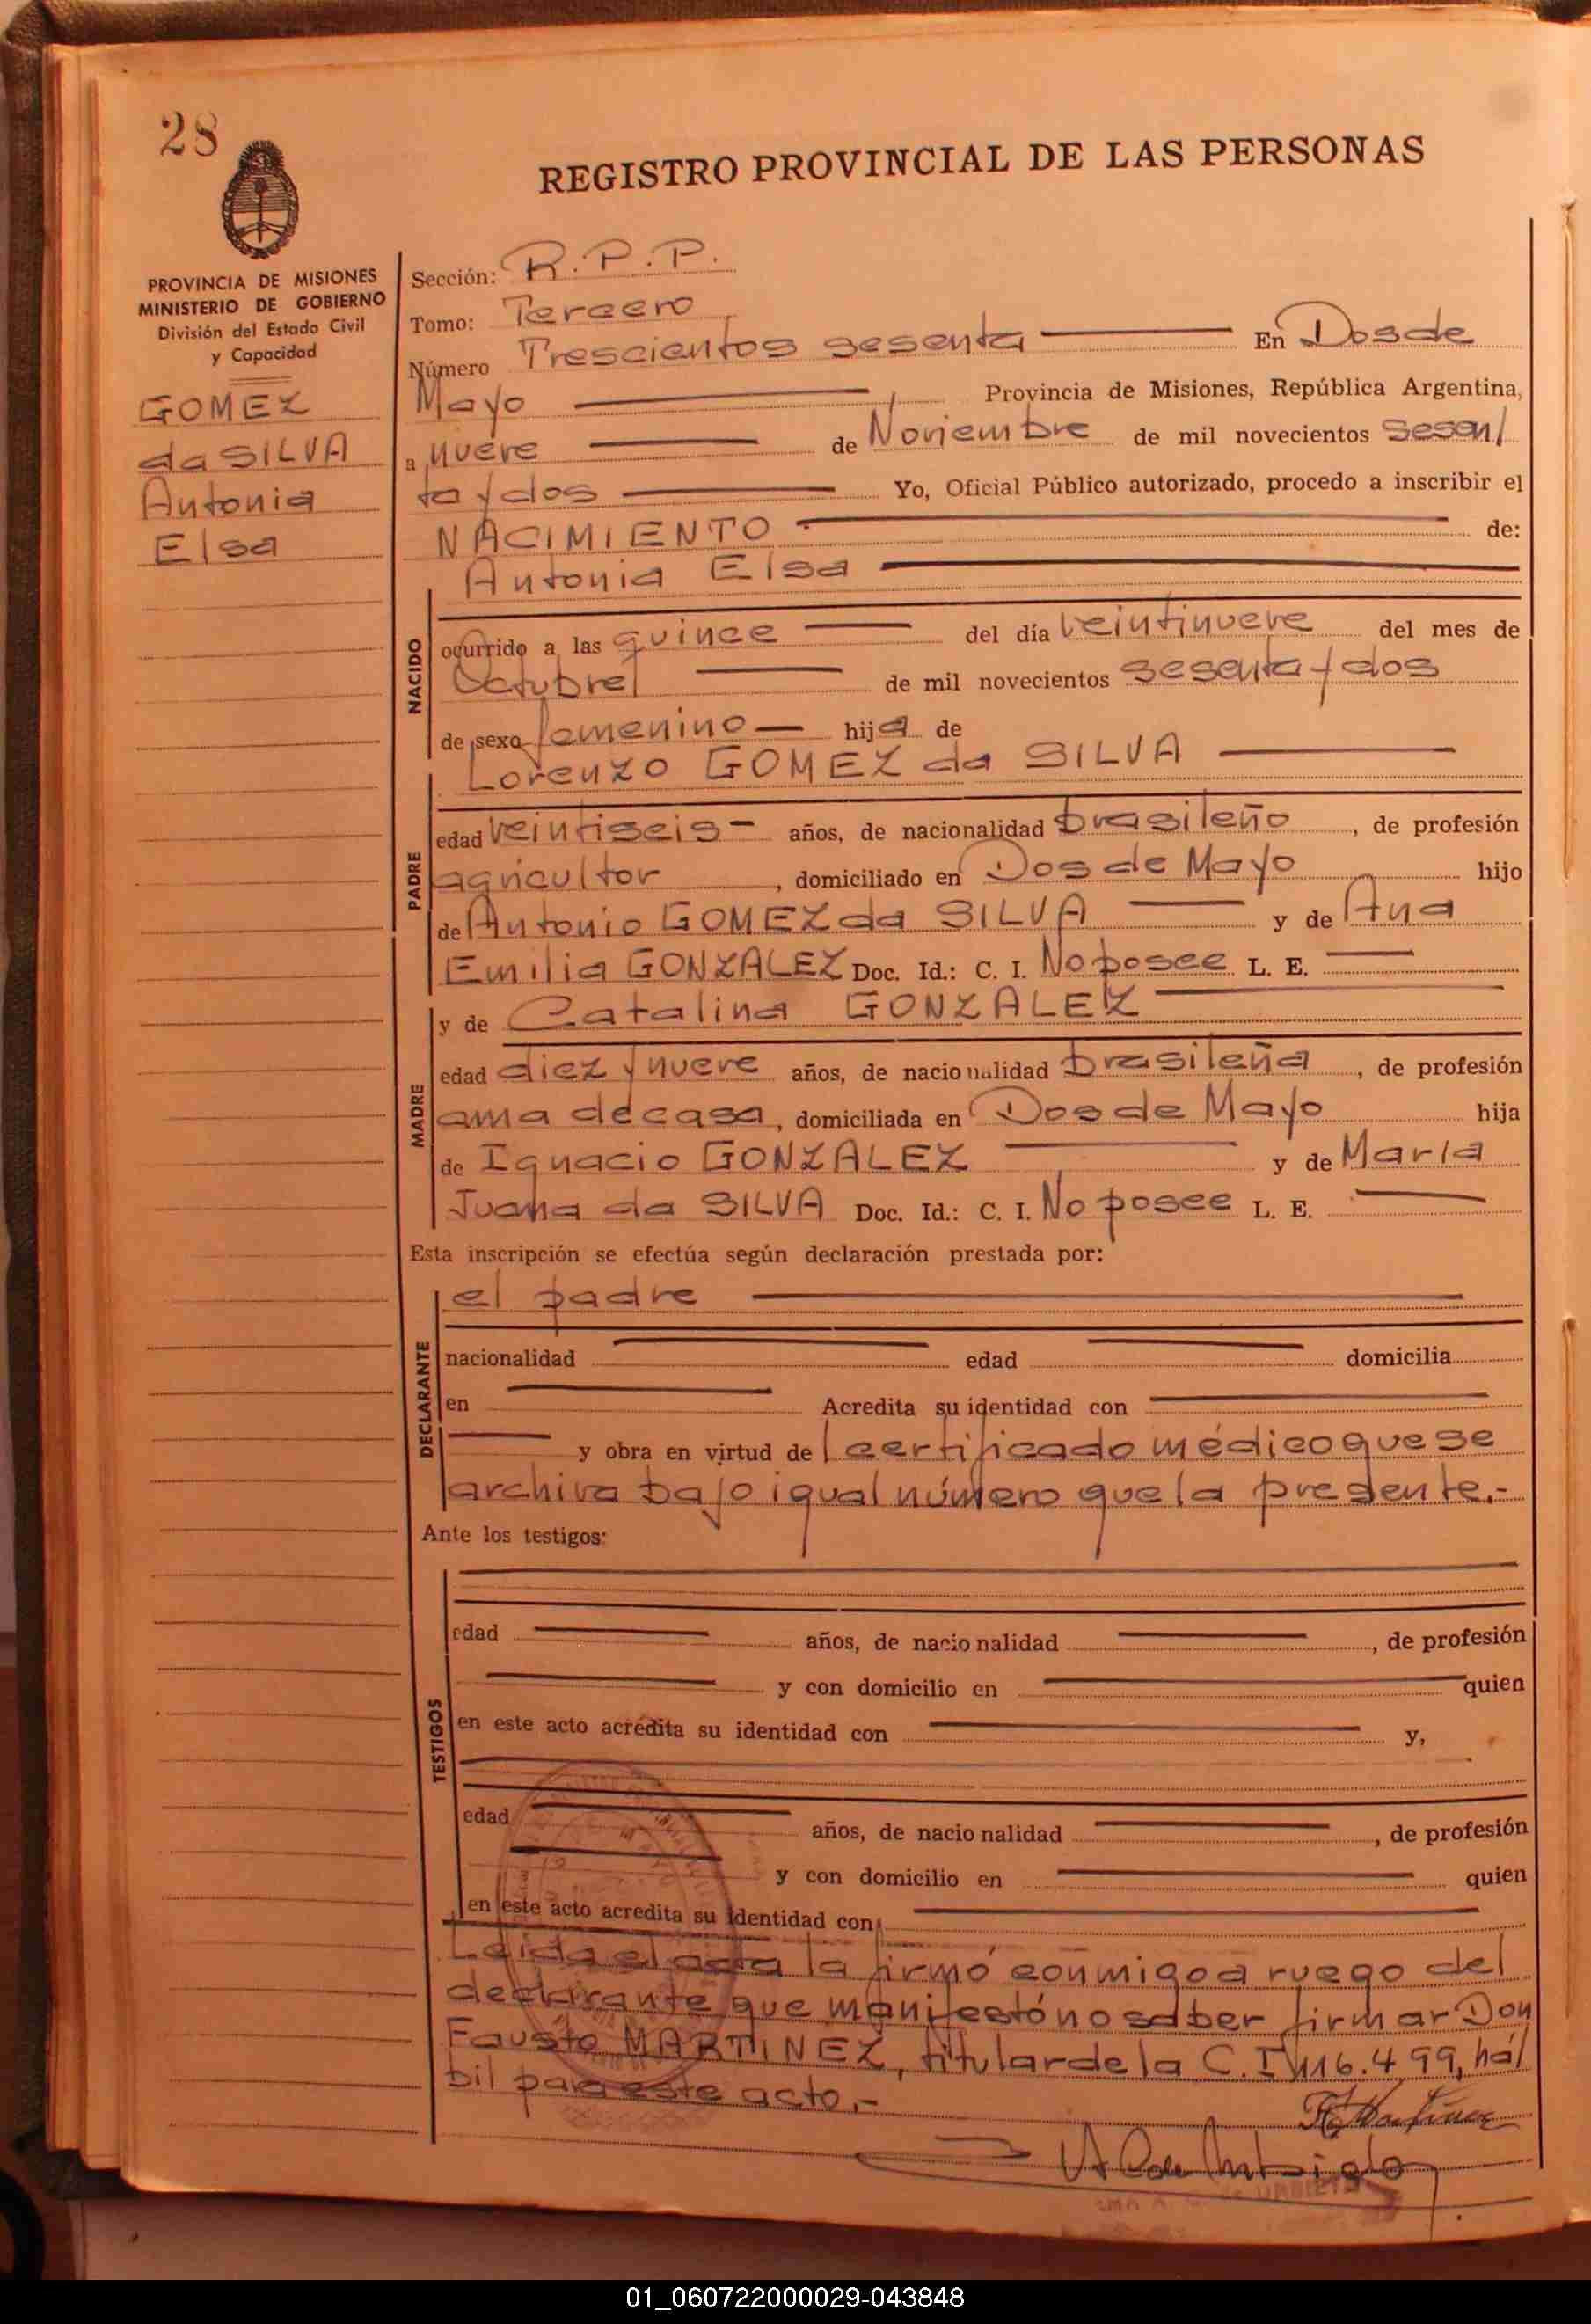 28
REGISTRO PROVINCIAL DE LAS PERSONAS
PROVINCIA DE MISIONES
MINISTERIO DE GOBIERNO
División del Estado Civil
y Capacidad
GOMEZ
da SILVA
Antonia
Elsa
Sección: R.P.P.
Tomo: Tercero
Número Trescientos sesenta En Dos de
Mayo Provincia de Misiones, República Argentina,
a nueve de Noviembre de mil novecientos sesen/
ta y dos Yo, Oficial Público autorizado, procedo a inscribir el
NACIMIENTO de:
Antonia Elsa
NACIDO
ocurrido a las quince del día veintinueve del mes de
Octubre de mil novecientos sesenta y dos
de sexo femenino hija de
Lorenzo GOMEZ da SILVA
PADRE
edad veintiseis años, de nacionalidad brasileño, de profesión
agricultor, domiciliado en Dos de Mayo hijo
de Antonio GOMEZ da SILVA y de Ana
Emilia GONZALEZ Doc. Id.: C. I. No posee L. E.
y de Catalina GONZALEZ
MADRE
edad diez y nueve años, de nacionalidad brasileña, de profesión
ama de casa, domiciliada en Dos de Mayo hija
de Ignacio GONZALEZ y de María
Juana da SILVA Doc. Id.: C. I. No posee L. E.
Esta inscripción se efectúa según declaración prestada por:
el padre
DECLARANTE
nacionalidad edad domicilia
en Acredita su identidad con
y obra en virtud de certificado médico que se
archiva bajo igual número que la presente.-
Ante los testigos:
TESTIGOS
edad años, de nacionalidad, de profesión
y con domicilio en quien
en este acto acredita su identidad con y,
edad años, de nacionalidad, de profesión
y con domicilio en quien
en este acto acredita su identidad con
Leida el acta la firmó conmigo a ruego del
declarante que manifestó no saber firmar Don
Fausto MARTINEZ, titular de la C.I. 116.499, há/
bil para este acto.-
01_060722000029-043848